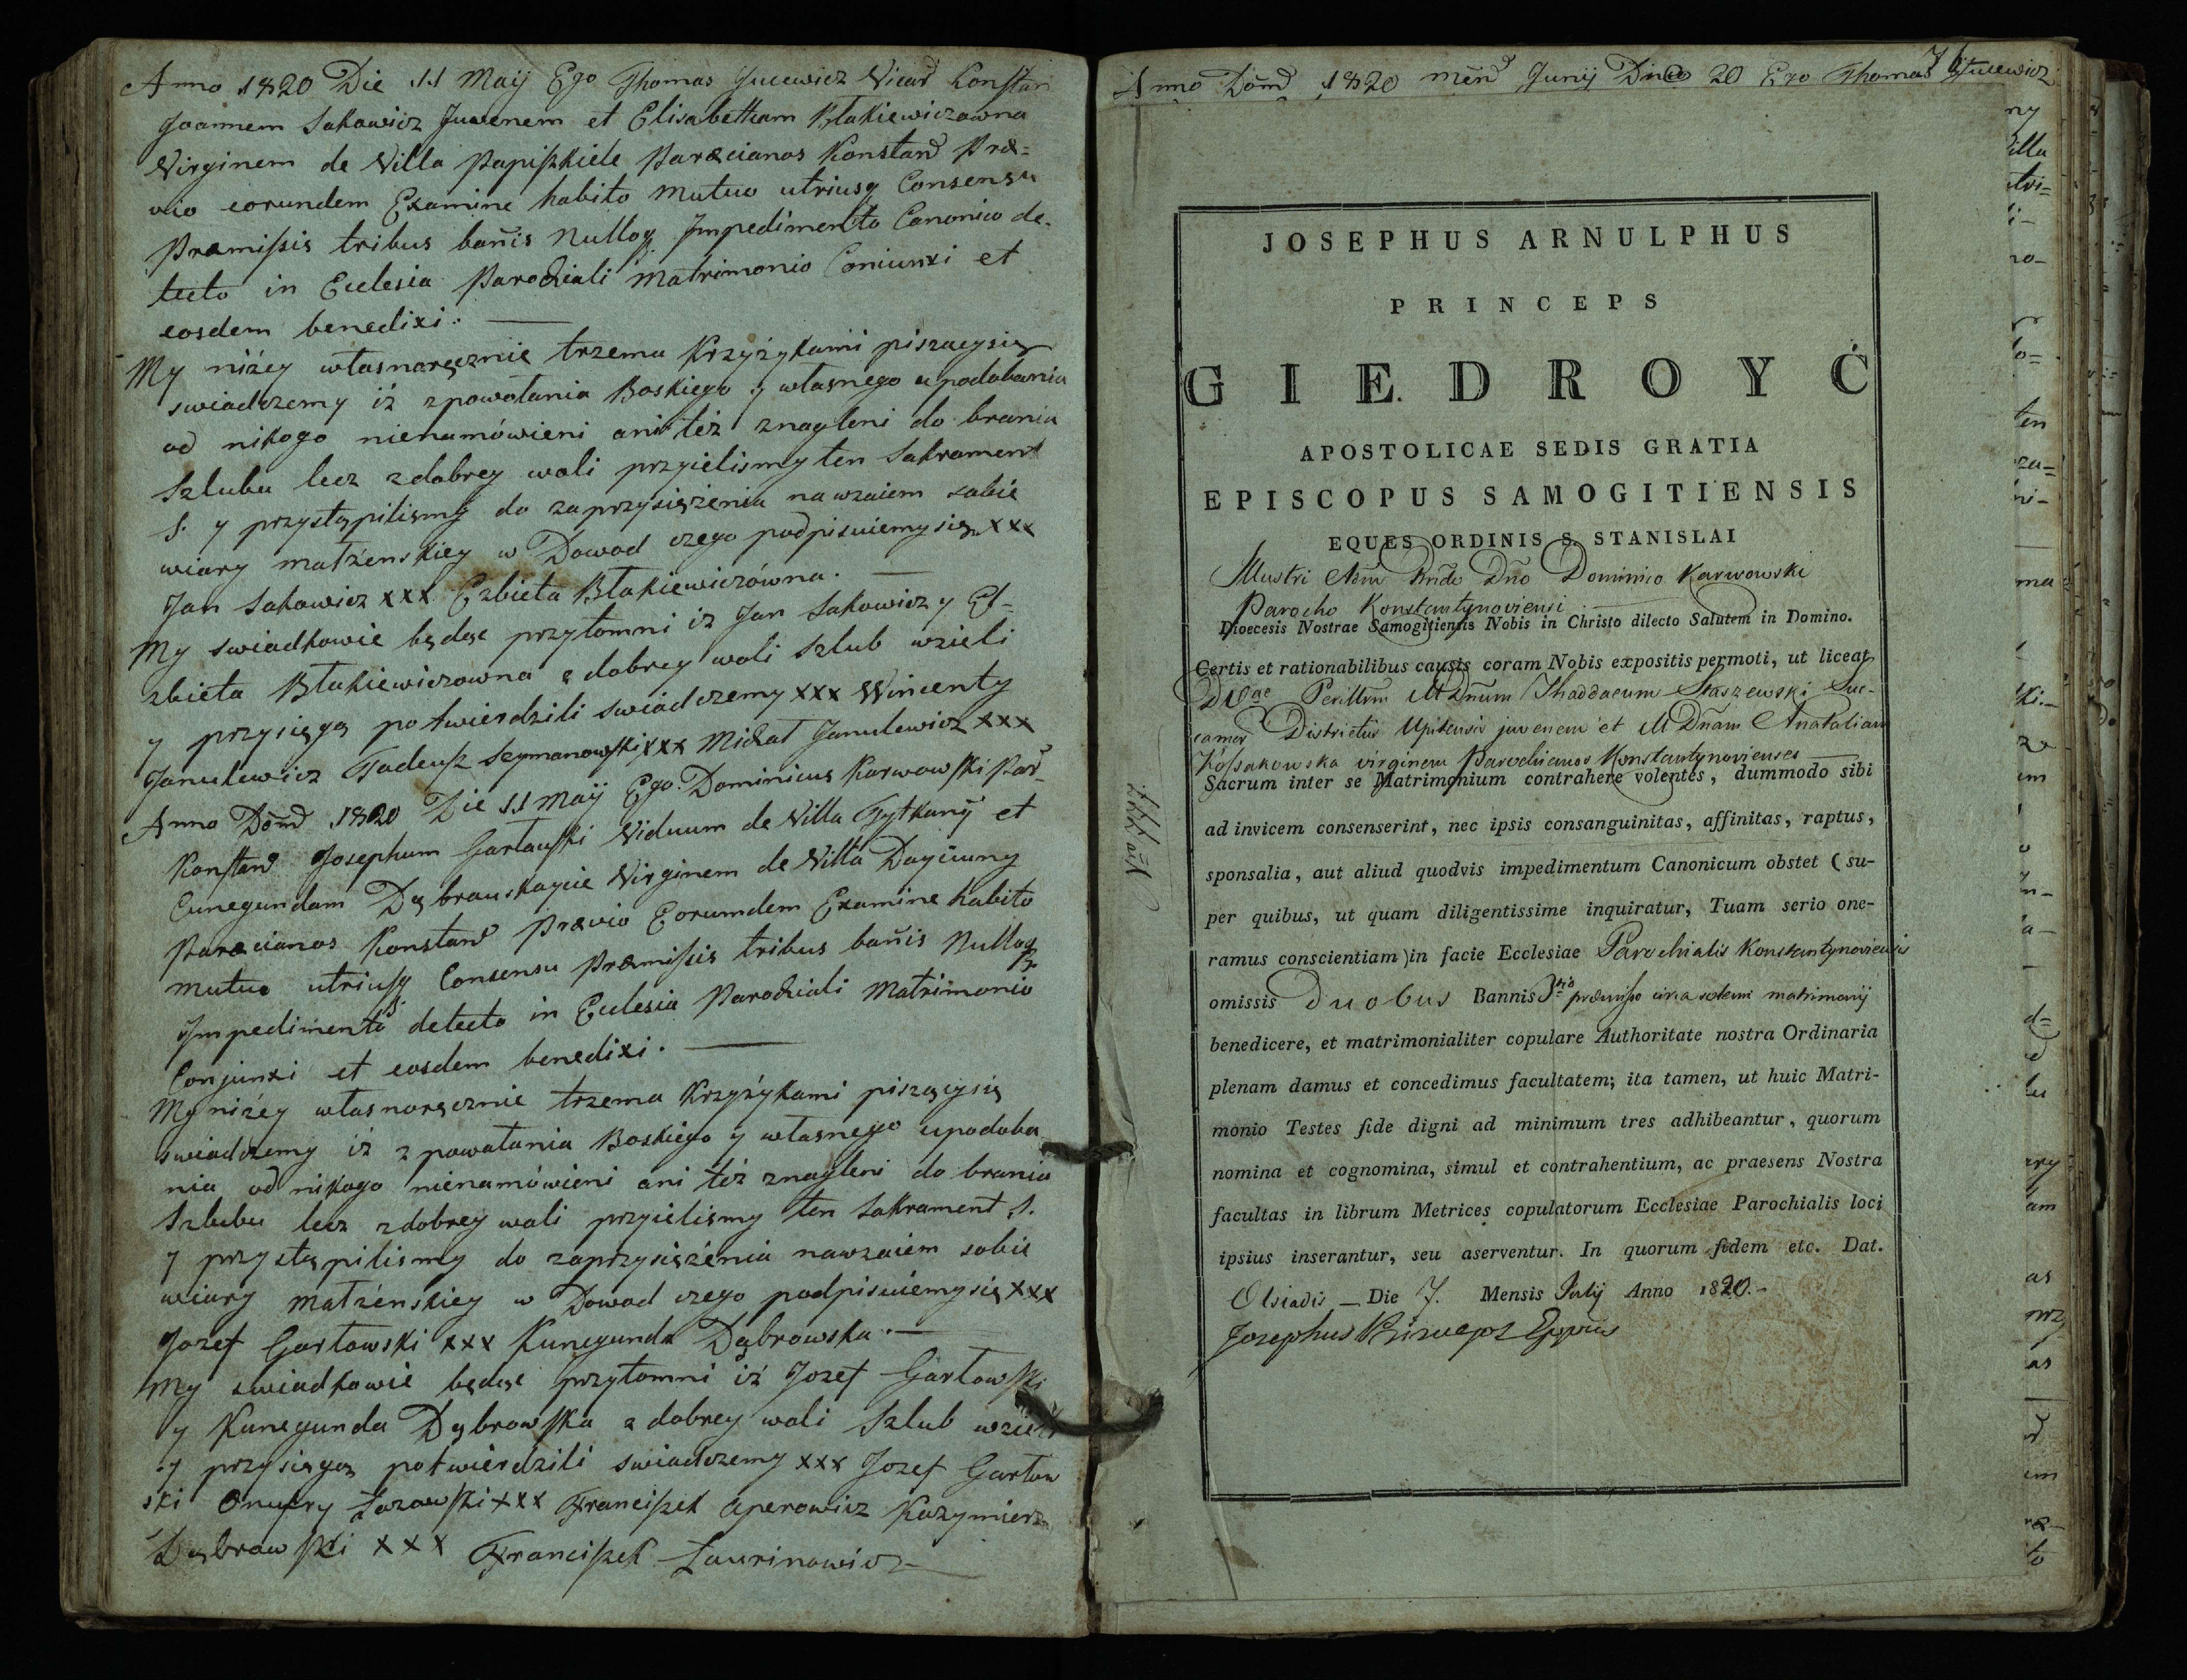 Anno 1820 Die 11 Maij Ego Thomas Jucewicz Vicar Konstan
Joannem Sakowicz Juvenem et Elisabetham Błakiewiczowna
Virginem de Villa Papiszkiele Paræcianos Konstan Præ=
vio eorundem Examine habito mutuo utriusq Consensu
Præmissis tribus banis Nulloq Impedimento Canonico de-
tecto in Ecclesia Parochiali Matrimonio Coniunxi et
eosdem benedixi.
My niżey własnoręcznie trzema Krzyżykami piszącysię
swiadczemy iż zpowołania Boskiego y własnego upodobania
od nikogo nienamówieni ani też znagleni do brania
Szlubu lecz zdobrey woli przyielismy ten Sakrament
S. y przystąpilismy do zaprzysiężenia nawzaiem sobie
wiary małżenskiey w Dowod czego podpisuiemysię xxx
Jan Sakowicz xxx Elzbieta Błakiewiczówna.
My swiadkowie będąc przytomni iż Jan Sakowicz y El=
zbieta Błakiewiczowna z dobrey woli Szlub wzieli
y przysięgą potwierdzili swiadczemy xxx Wincenty
Janulewicz Tadeusz Szymanowski xxx Michał Janulewicz xxx
Anno Dom 1820 Die 11 Maij Ego Dominicus Karwowski Par
Konstan Josephum Garławski Viduum de Villa Tytkany et
Cunegundam Dąbrauskaycie Virginem de Villa Dayciuny
Paræcianos Konstan Prævio Eorumdem Examine habito
mutuo utriusq Consensu Præmissis tribus banis Nulloq
Impedimento detecto in Ecclesia Parochiali Matrimonio
Conjunxi et eosdem benedixi.
My niżey własnoręcznie trzema Krzyżykami piszącysię
swiadczemy iż zpowołania Boskiego y własnego upodoba
nia od nikogo nienamówieni ani też znagleni do brania
Szlubu lecz zdobrey woli przyielismy ten Sakrament S.
y przystąpilismy do zaprzysiężenia nawzaiem sobie
wiary małżenskiey w Dowod czego podpisuiemysię xxx
Jozef Garłowski xxx Kunegunda Dąbrowska.
My swiadkowie będąc przytomni iż Jozef Garłowski
y Kunegunda Dąbrowska z dobrey woli Szlub wzieli
y przysięgą potwierdzili swiadczemy xxx Jozef Garłow
ski Onufry Łozowski xxx Franciszek Aperowicz Kazymierz
Dąbrowski xxx Franciszek Laurinowicz
76
Anno Dom 1820 Men Junij Die 20 Ego Thomas Jucewicz
JOSEPHUS ARNULPHUS
PRINCEPS
GIEDROYĆ
APOSTOLICAE SEDIS GRATIA
EPISCOPUS SAMOGITIENSIS
EQUES ORDINIS S. STANISLAI
Illustri Adm Rndo Dno Dominico Karwowski
Parocho Konstantynoviensi
Dioecesis Nostrae Samogitiensis Nobis in Christo dilecto Salutem in Domino.
Certis et rationabilibus causis coram Nobis expositis permoti, ut liceat
Perillrm M Dnum Thaddaeum Staszewski Suc-
camer Districtus Upitensis juvenem et M Dnam Anataliam
Kossakowska virginem Parochianos Konstantynovienses
Sacrum inter se Matrimonium contrahere volentes, dummodo sibi
ad invicem consenserint, nec ipsis consanguinitas, affinitas, raptus,
sponsalia, aut aliud quodvis impedimentum Canonicum obstet (su-
per quibus, ut quam diligentissime inquiratur, Tuam serio one-
ramus conscientiam)in facie Ecclesiae Parochialis Konstantynoviensis
omissis Duobus Bannis 3tio præmisso circa solemi matrimonij
benedicere, et matrimonialiter copulare Authoritate nostra Ordinaria
plenam damus et concedimus facultatem; ita tamen, ut huic Matri-
monio Testes fide digni ad minimum tres adhibeantur, quorum
nomina et cognomina, simul et contrahentium, ac praesens Nostra
facultas in librum Metrices copulatorum Ecclesiae Parochialis loci
ipsius inserantur, seu aserventur. In quorum fidem etc. Dat.
Olsiadis — Die 7. Mensis Julij Anno 1820.-
Josephus Princeps Eppus